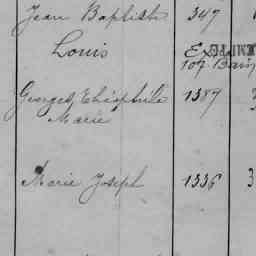 Jean Baptiste 347
Louis
107 Bain
Georges, Théophile 1387
Marie
Marie Joseph 1336 3